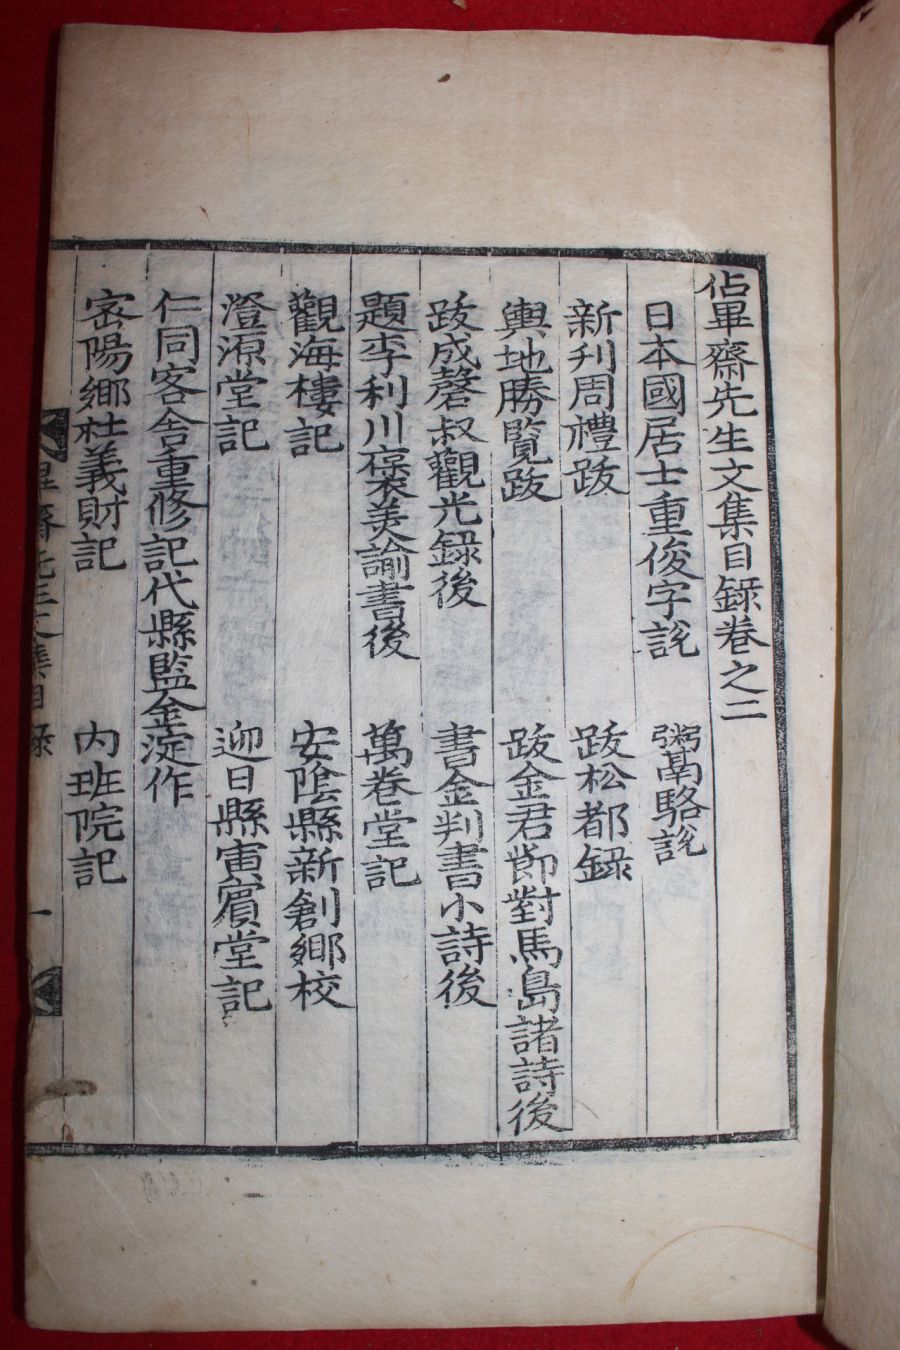 佔畢齋先生文集目錄卷之二
日本國居士重俊字說　鬻駱說
新刊周禮跋　跋松都錄
輿地勝覽跋　跋金君節對馬島諸詩後
跋成磬叔觀光錄後　書金判書小詩後
題李利川葆褒美諭書後　萬卷堂記
觀海樓記　安陰縣新創鄕校
澄源堂記　迎日縣寅賓堂記
仁同客舍重修記代縣監金淀作
密陽鄕社義財記　內班院記
畢齋先生文集目錄　一